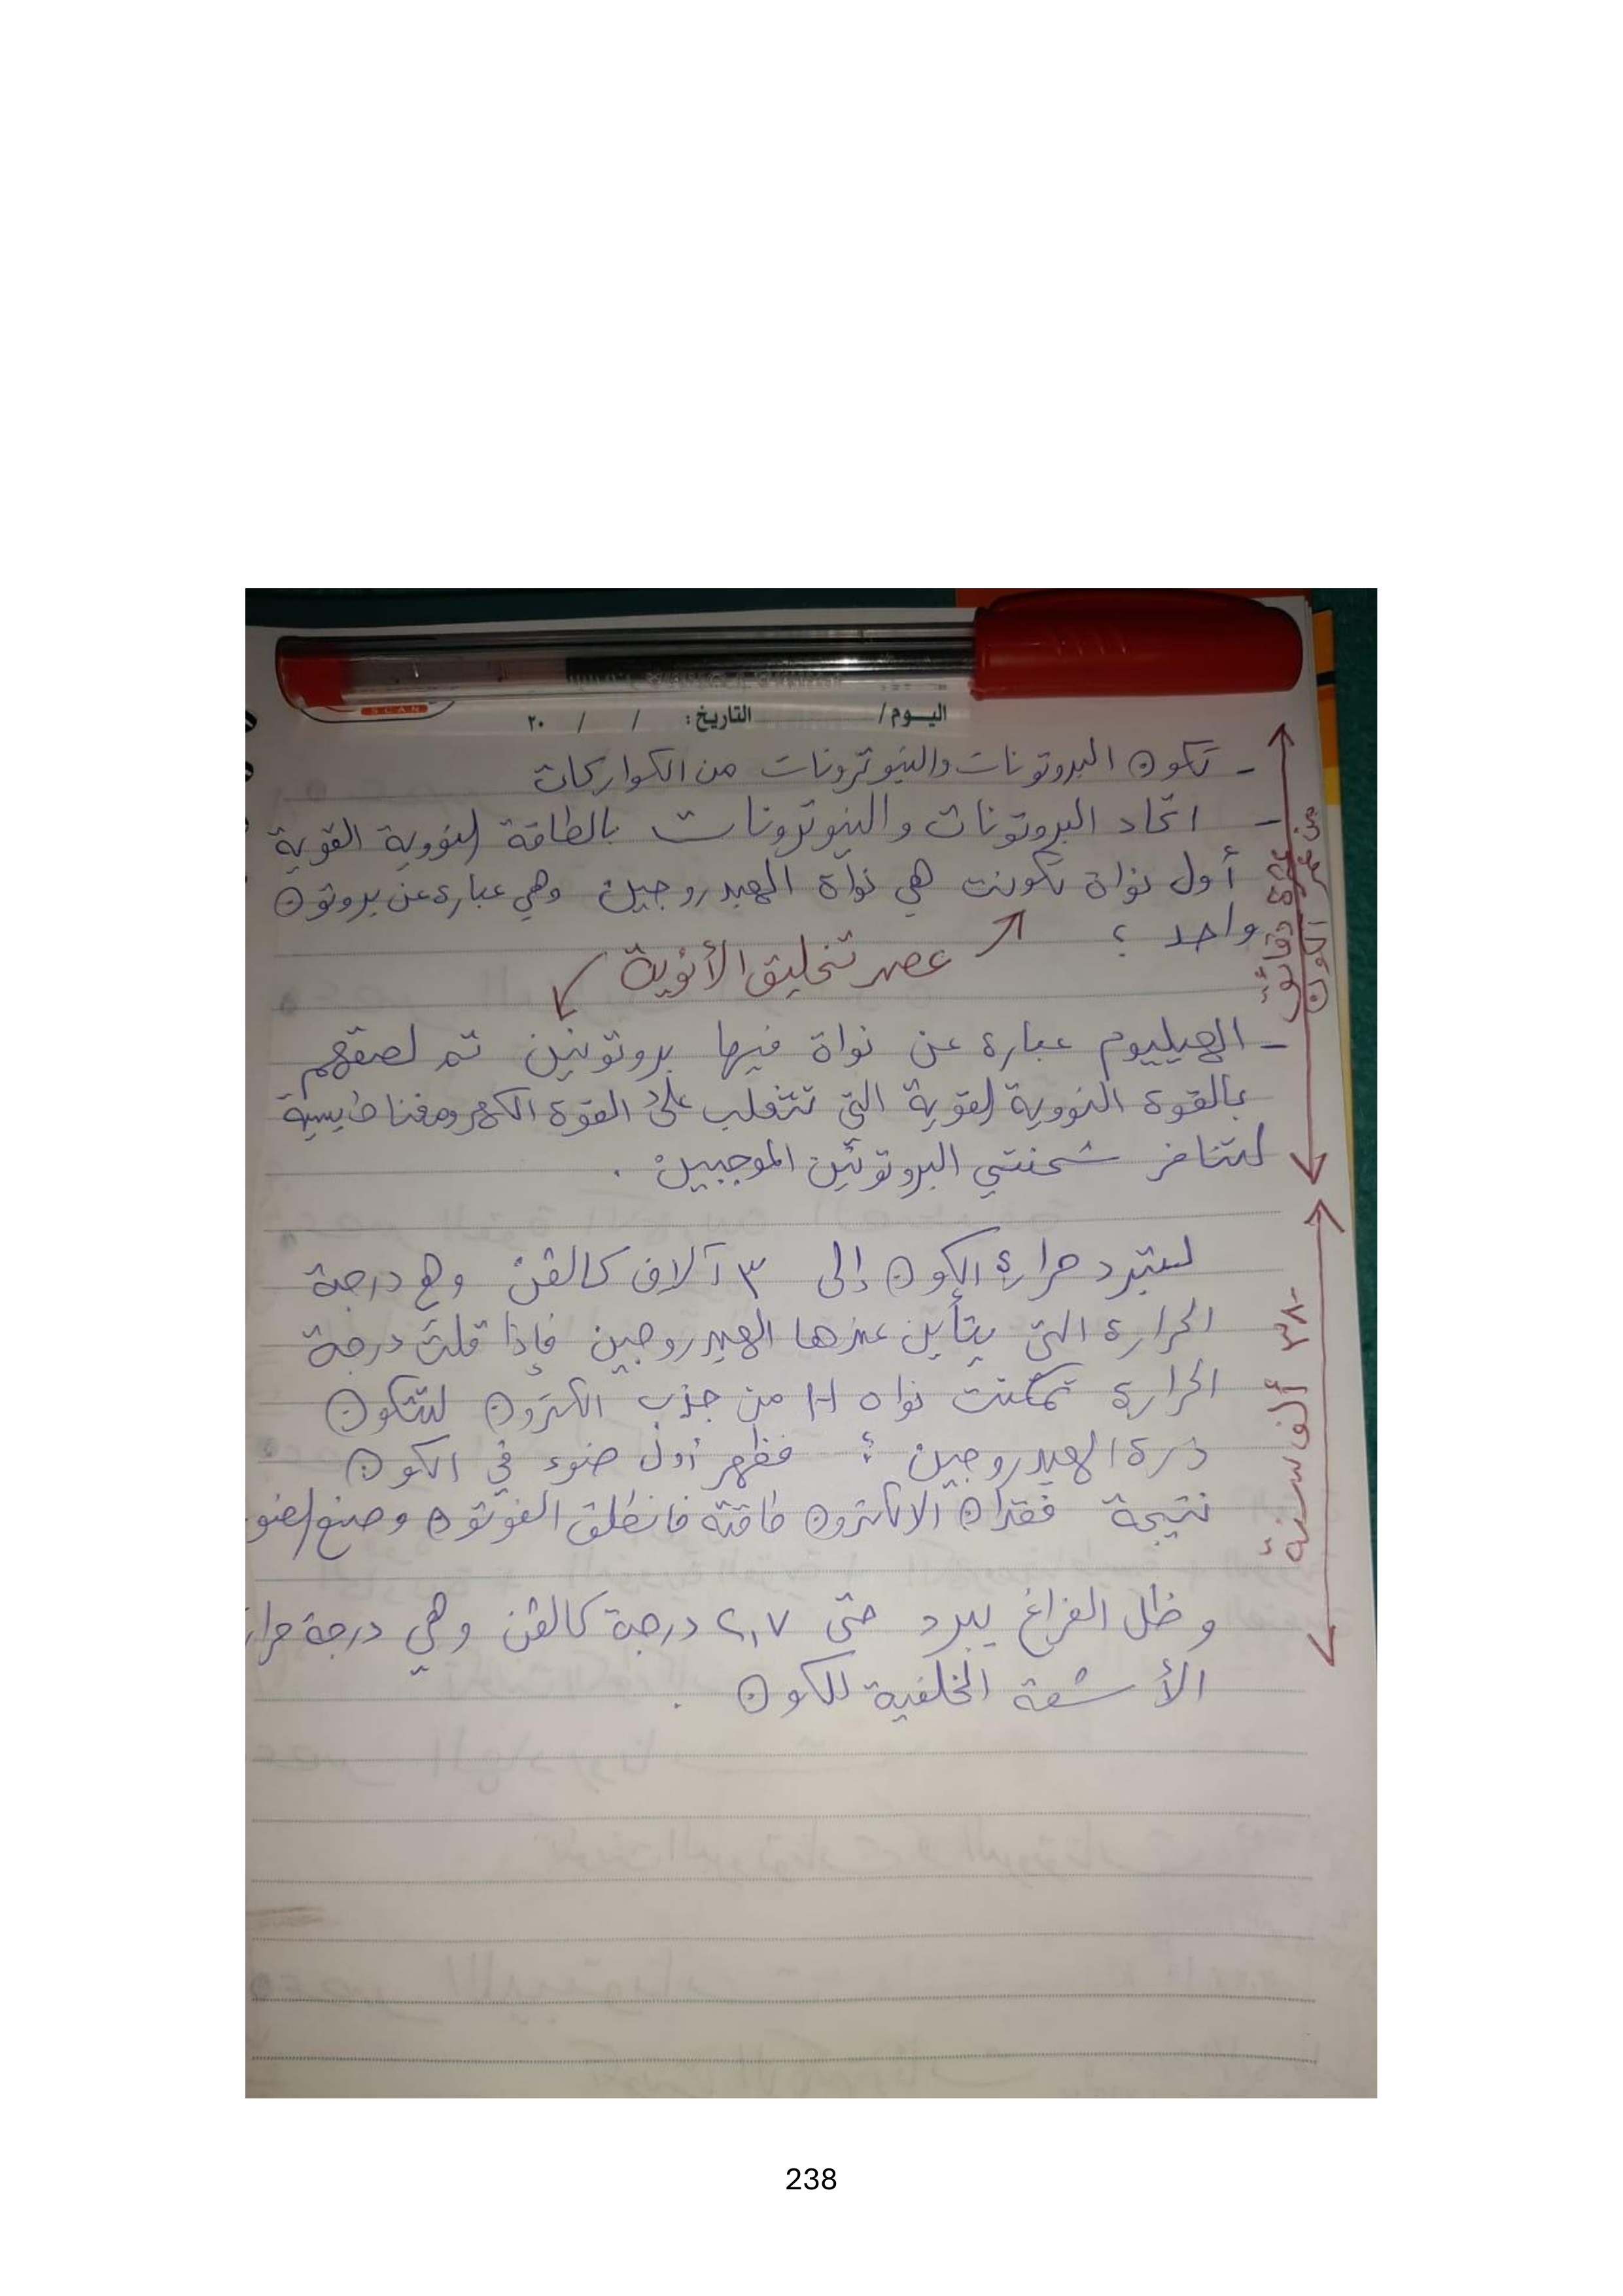 SCAN
اليوم/ التاريخ: / / ٢٠
- تكون البروتونات والنيوترونات من الكواركات
- اتحاد البروتونات والنيوترونات بالطاقة النووية القوية
أول نواة تكونت هي نواة الهيدروجين وهي عبارة عن بروتون
واحد ؛
عصر تخليق الأنوية
- الهيليوم عبارة عن نواة فيها بروتونين تم لصقهم
بالقوة النووية القوية التي تتغلب على القوة الكهرومغناطيسية
لتنافر شحنتي البروتونين الموجبين .
عشرة دقائق
من عمر الكون
لتبرد حرارة الكون إلى ٣ آلاف كالفن وهي درجة
الحرارة التي يتأين عندها الهيدروجين فإذا قلت درجة
الحرارة تمكنت نواه H من جذب الكترون لتتكون
ذرة الهيدروجين ؛ فظهر أول ضوء في الكون
نتيجة فقدان الالكترون طاقته فانطلق الفوتون وصنع الضو
٣٨٠ ألف سنة
وظل الفراغ يبرد حتى ٢,٧ درجة كالفن وهي درجة حرار
الأشعة الخلفية للكون .
238